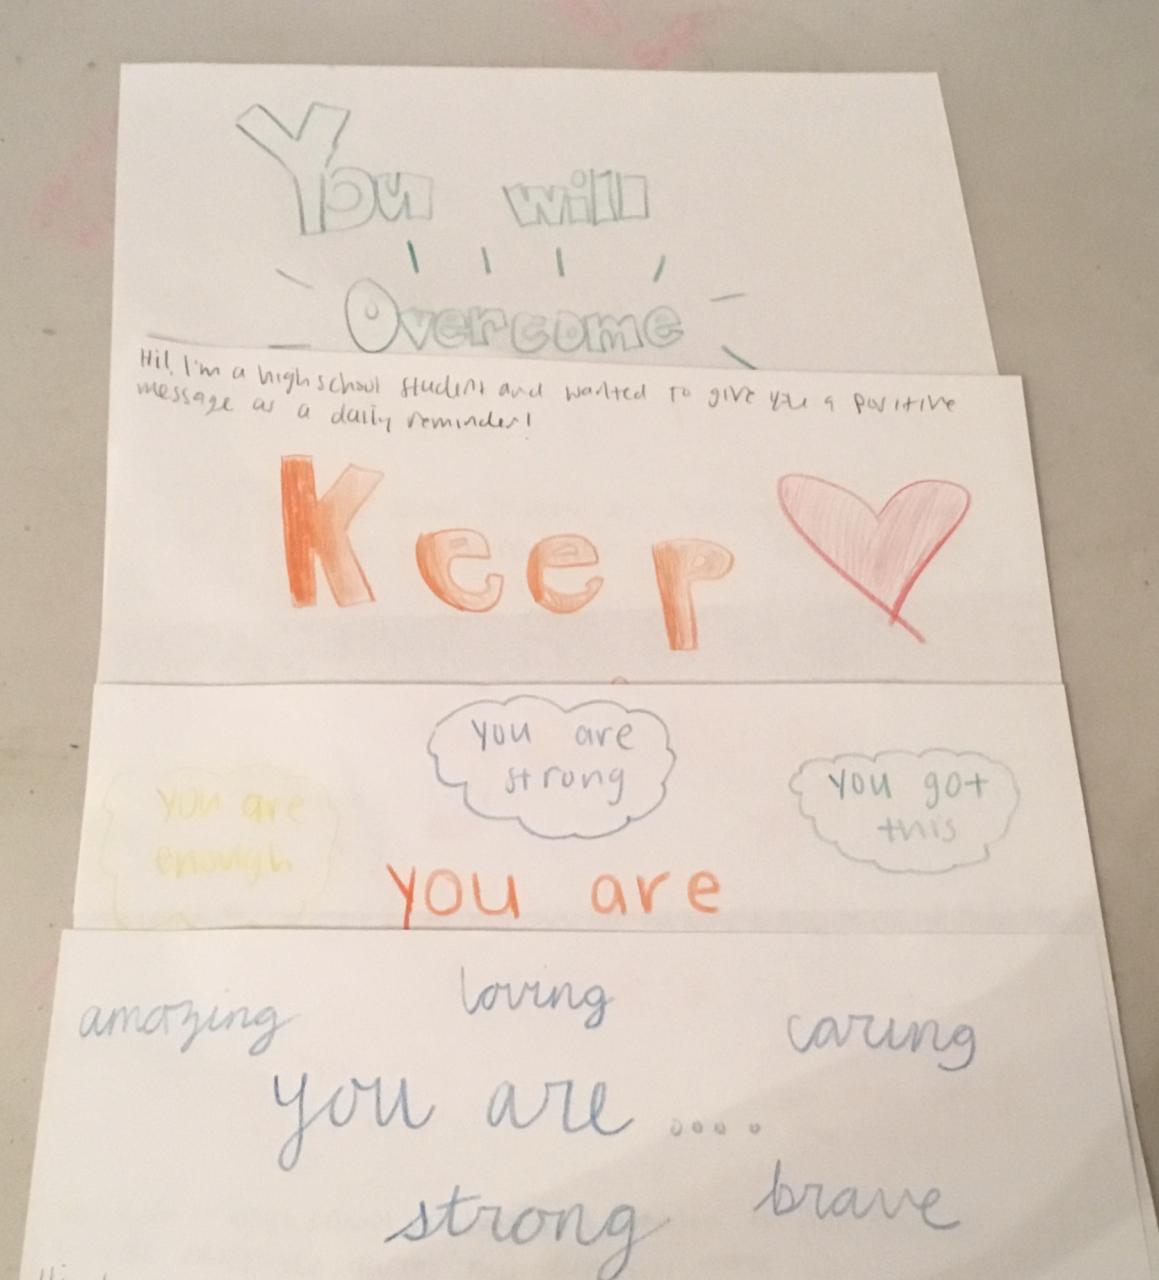 You will
Overcome
Hi! I'm a high school student and wanted to give you a positive
message as a daily reminder!
Keep
you are
strong
you got
this
you are
enough
you are
loving
amazing
caring
you are ....
brave
strong